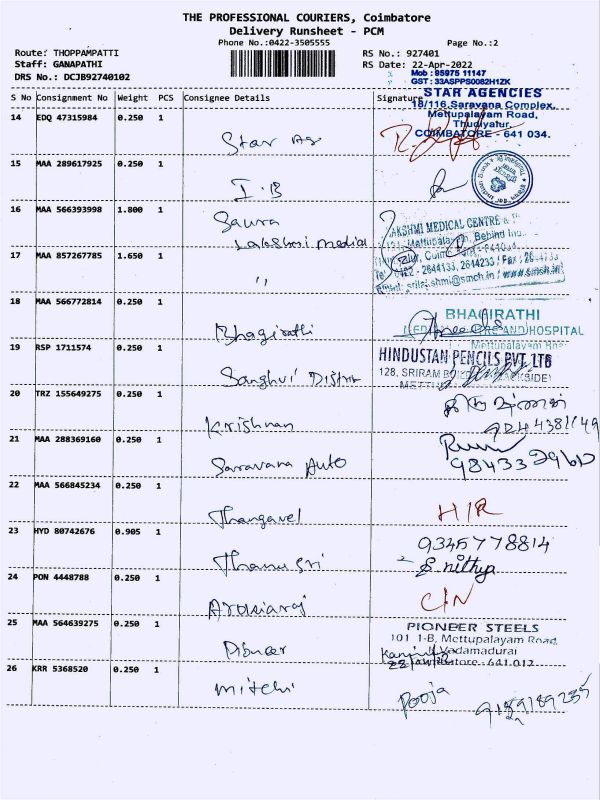 THE PROFESSIONAL COURIERS, Coimbatore
Delivery Runsheet - PCM
Phone No.:0422-3505555
Page No.:2
Route: THOPPAMPATTI
RS No.: 927401
Staff: GANAPATHI
RS Date: 22-Apr-2022
DRS No.: DCJB92740102
Mob : 95975 11147
GST : 33ASPPS0082H1ZK
S No Consignment No Weight PCS Consignee Details Signature
STAR AGENCIES
18/116, Saravana Complex,
Mettupalayam Road,
Thudiyalur,
COIMBATORE - 641 034.
14 EDQ 47315984 0.250 1
Star Ag
15 MAA 289617925 0.250 1
I.B
16 MAA 566393998 1.800 1
Saura
Lakshmi medial
LAKSHMI MEDICAL CENTRE &
Mettupalayam, Behind
17 MAA 857267785 1.650 1
"
2644133, 2614233 / Fax : 26
18 MAA 566772814 0.250 1
Bhagirathi
BHAGIRATHI
AND HOSPITAL
Mettupalayam
19 RSP 1711574 0.250 1
Sanghvi Distri
HINDUSTAN PENCILS PVT. LTD
128, SRIRAM
20 TRZ 155649275 0.250 1
Krishnan
21 MAA 288369160 0.250 1
Saravana Auto
22 MAA 566845234 0.250 1
Thangavel
H/R
23 HYD 80742676 0.905 1
Thanu sri
9345778814
S. nithya
24 PON 4448788 0.250 1
Arokiaraj
C/N
25 MAA 564639275 0.250 1
Pioneer
PIONEER STEELS
101 1-B, Mettupalayam Road,
Vadamadurai
641 017
26 KRR 5368520 0.250 1
mitchi
Pooja